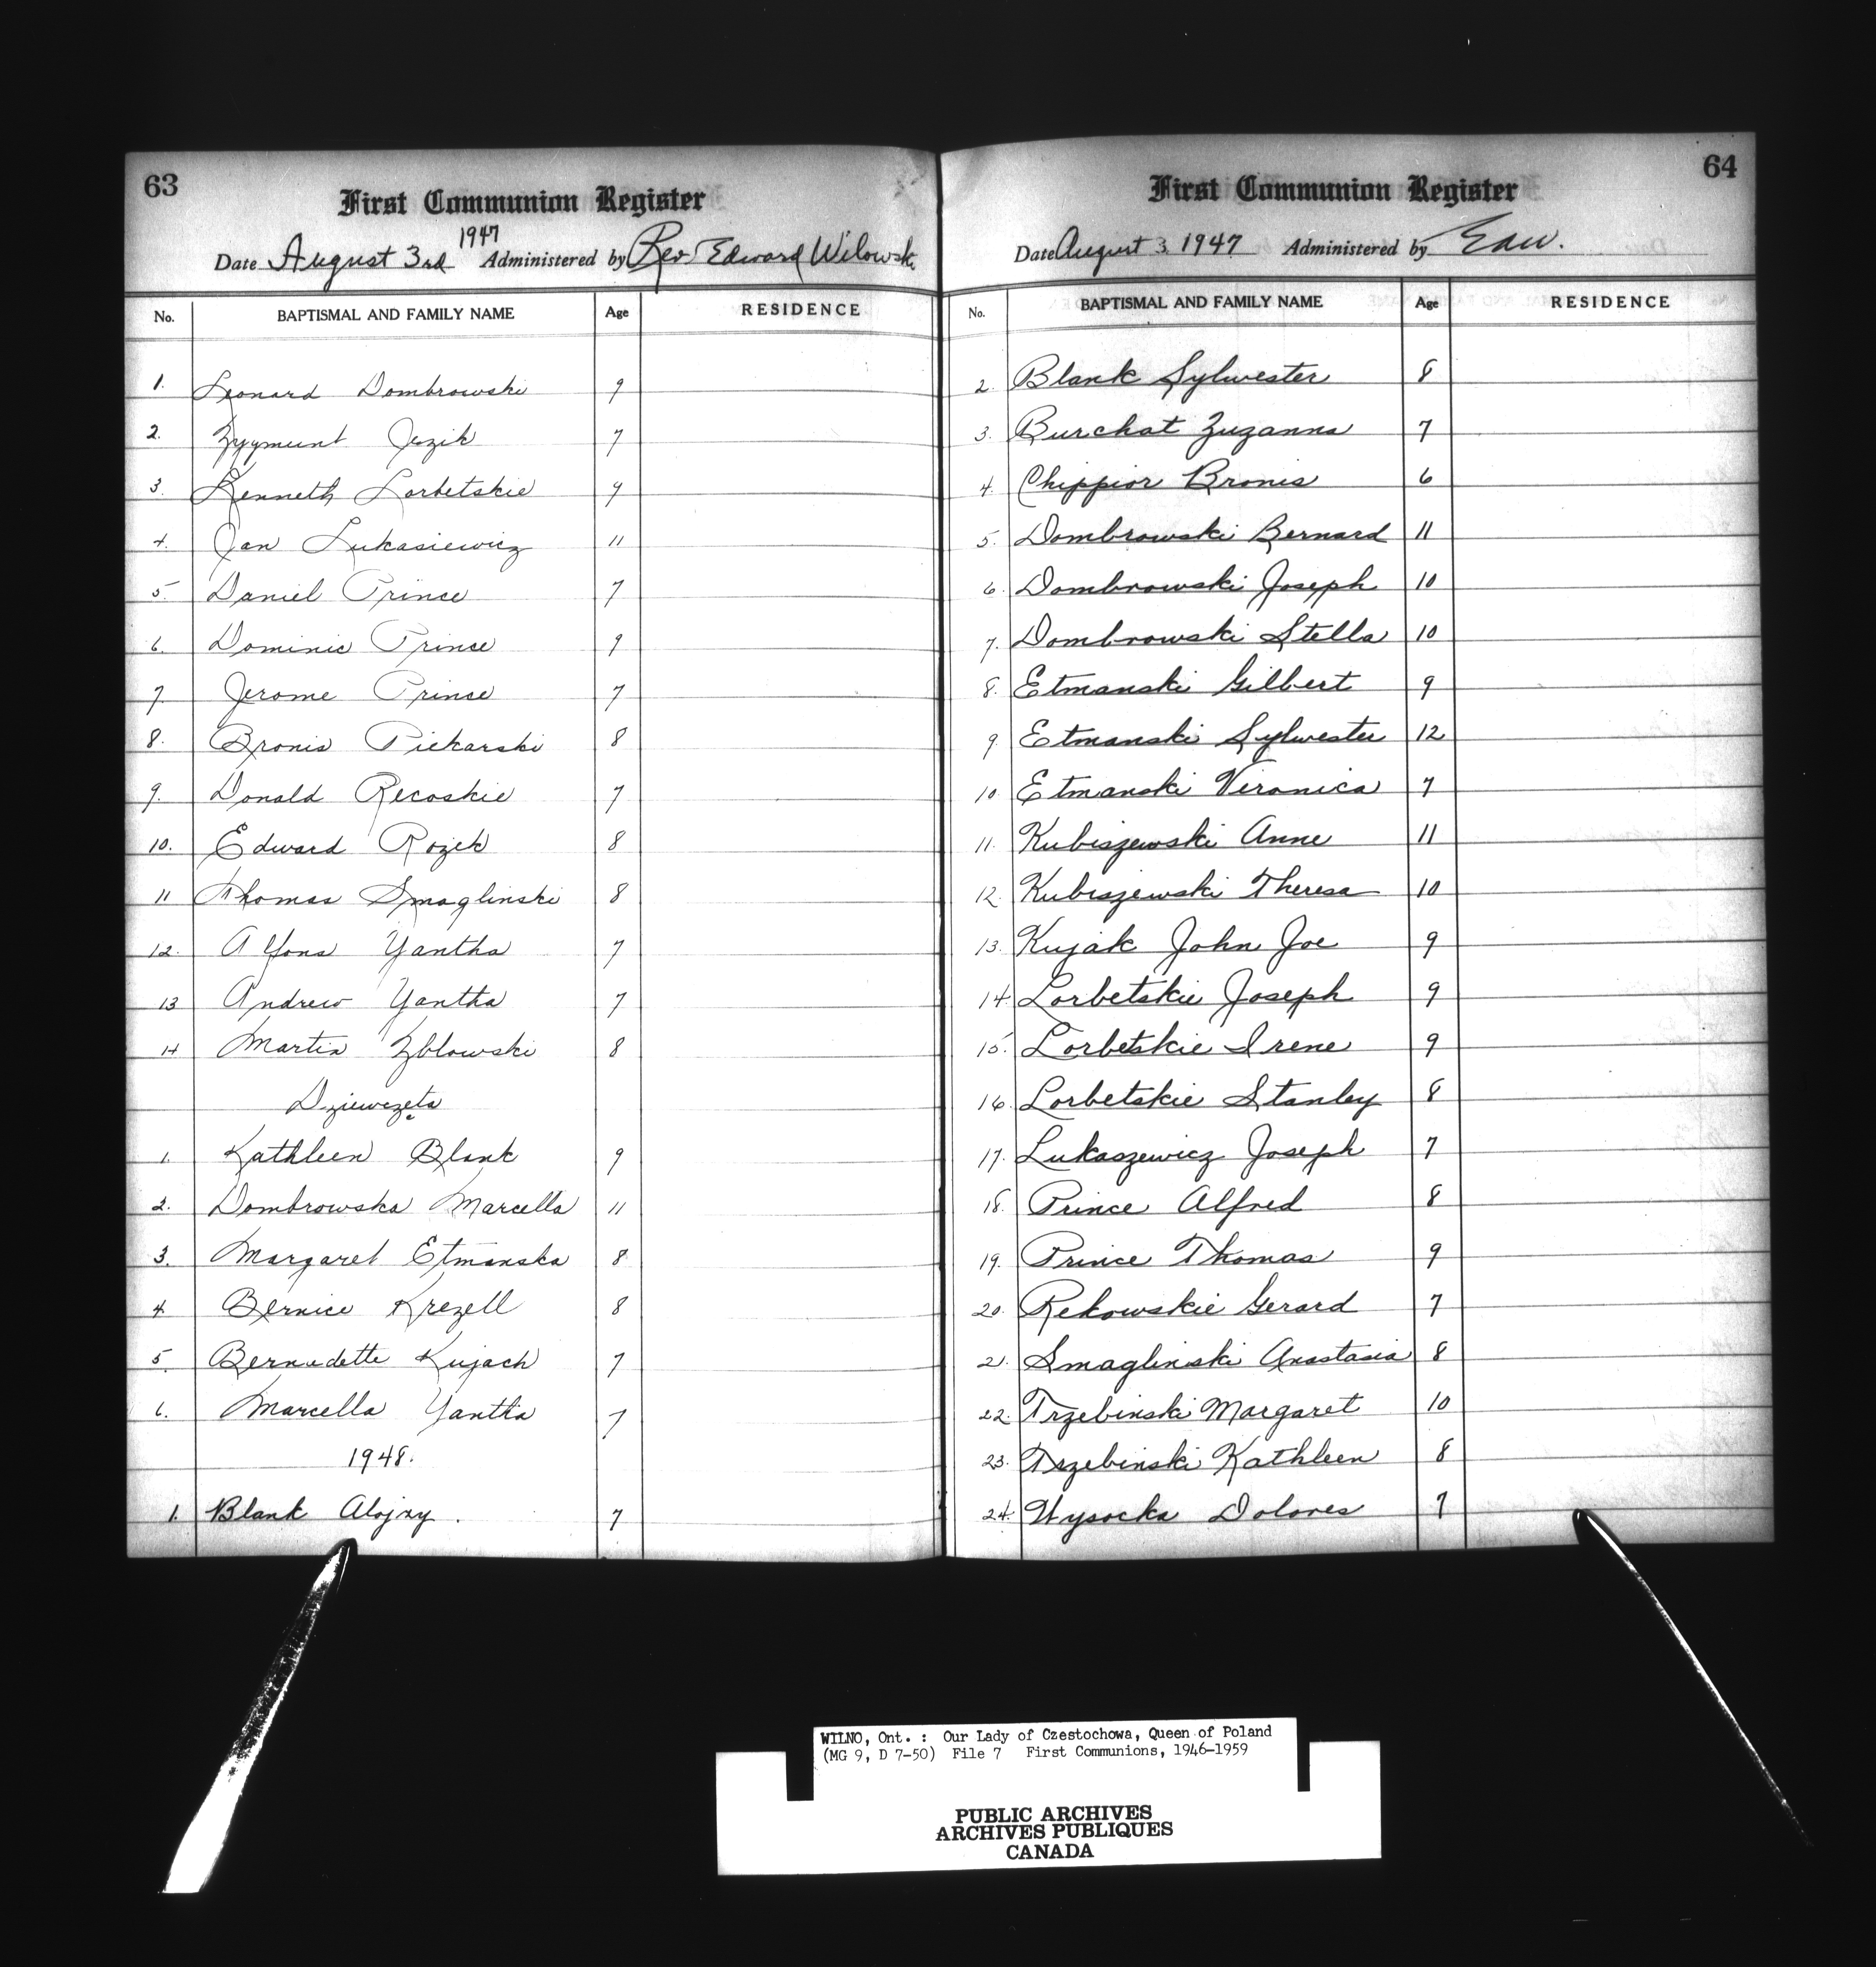 63
First Communion Register
Date August 3rd 1947 Administered by Rev Edward Wilowski
No. BAPTISMAL AND FAMILY NAME Age RESIDENCE
1. Leonard Dombrowski 9
2. Zygmunt Jezik 7
3. Kenneth Lorbetskie 9
4. Jan Lukasiewicz 11
5. Daniel Prince 7
6. Dominic Prince 9
7. Jerome Prince 7
8. Bronis Piekarski 8
9. Donald Recoskie 7
10. Edward Rozek 8
11 Thomas Smaglinski 8
12. Alfons Yantha 7
13 Andrew Yantha 7
14 Martin Zblowski 8
Dziewczęta
1. Kathleen Blank 9
2. Dombrowska Marcella 11
3. Margaret Etmanska 8
4. Bernice Krezell 8
5. Bernadette Kujach 7
6. Marcella Yantha 7
1948.
1. Blank Alojzy. 7
64
First Communion Register
Date August 3. 1947 Administered by Eaw.
No. BAPTISMAL AND FAMILY NAME Age RESIDENCE
2. Blank Sylwester 8
3. Burchat Zuzanna 7
4. Chippior Bronis 6
5. Dombrowski Bernard 11
6. Dombrowski Joseph 10
7. Dombrowski Stella 10
8. Etmanski Gilbert 9
9. Etmanski Sylwester 12
10. Etmanski Veronica 7
11. Kubiszewski Anne 11
12. Kubiszewski Theresa 10
13. Kujak John Joe 9
14. Lorbetskie Joseph 9
15. Lorbetskie Irene 9
16. Lorbetskie Stanley 8
17. Lukaszewicz Joseph 7
18. Prince Alfred 8
19. Prince Thomas 9
20. Rekowskie Gerard 7
21. Smaglinski Anastasia 8
22. Trzebinski Margaret 10
23. Trzebinski Kathleen 8
24. Wysocka Dolores 7
WILNO, Ont. : Our Lady of Czestochowa, Queen of Poland
(MG 9, D 7-50) File 7 First Communions, 1946-1959
PUBLIC ARCHIVES
ARCHIVES PUBLIQUES
CANADA